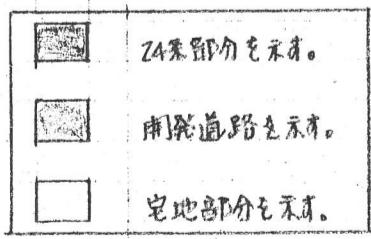 24条部分を示す。
開発道路を示す。
宅地部分を示す。